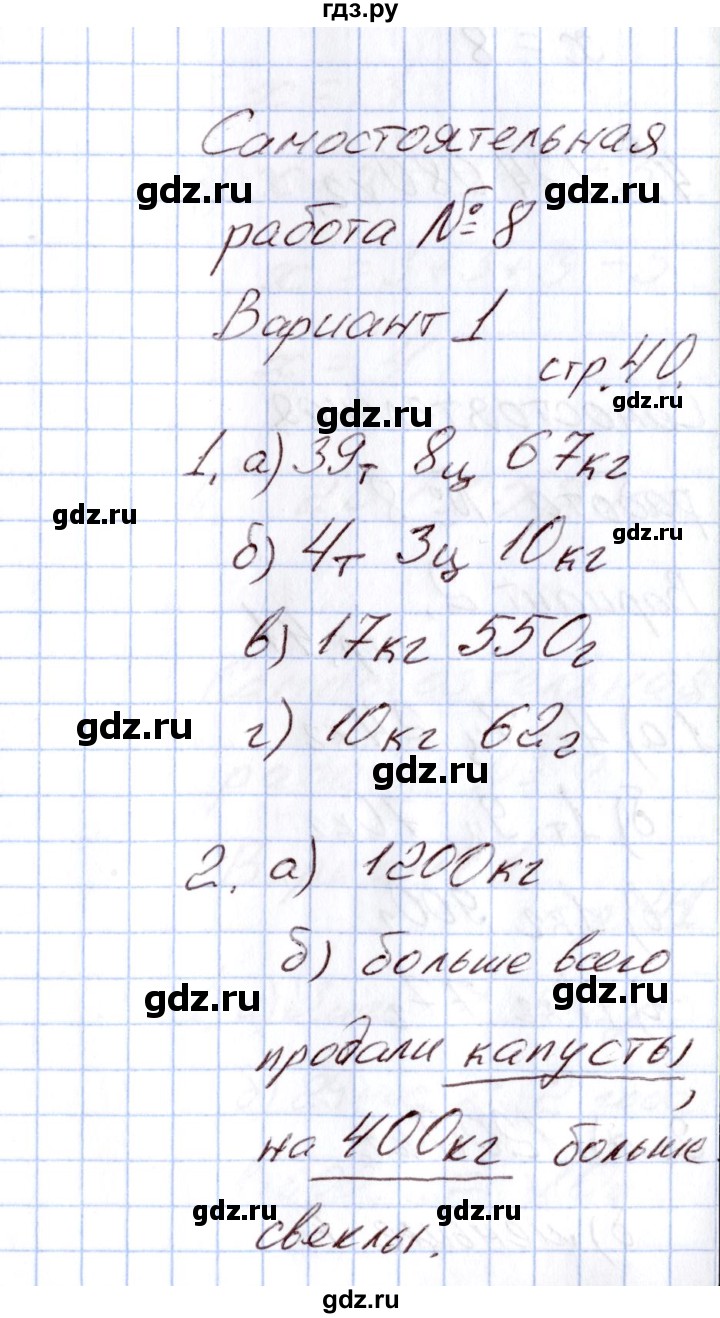 гдз.ру
Самостоятельная
gdz.ru gdz.ru
работа № 8
Вариант 1
стр. 40.
gdz.ru gdz.ru
1. а) 39т 8ц 67кг
gdz.ru gdz.ru
б) 4т 3ц 10кг
в) 17кг 550г
gdz.ru
г) 10кг 62г
gdz.ru
2. а) 1200кг
б) больше всего
gdz.ru gdz.ru
продали капусты,
на 400кг больше
gdz.ru gdz.ru
свеклы.
gdz.ru